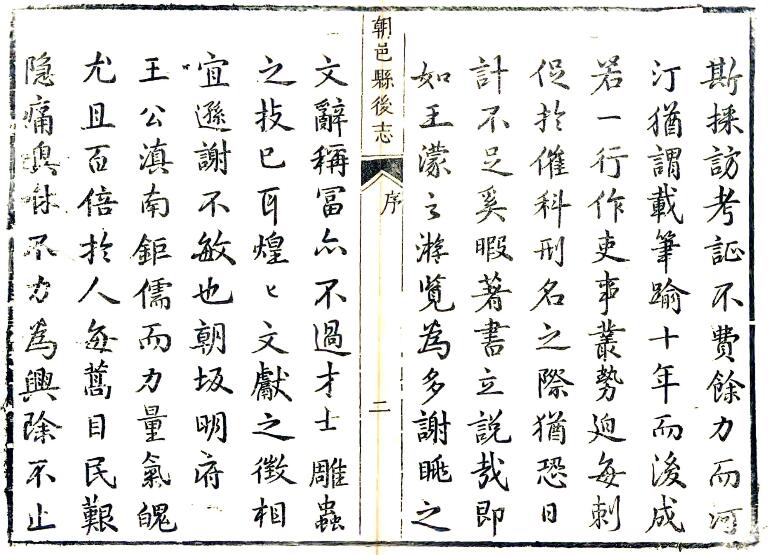 斯採訪考証不費餘力而河
汀猶謂載筆踰十年而後成
若一行作吏事叢勢迫每刺
促扵催科刑名之際猶恐日
計不足奚暇著書立說哉即
如王濛之游覧為多謝眺之
朝邑縣後志
序
二
文辭稱冨亦不過才士雕蟲
之技已耳煌〻文獻之徴相
宜遜謝不敏也朝坂明府
王公滇南鉅儒而力量氣魄
尤且百倍扵人每蒿目民艱
隐痛 不力為興除不止